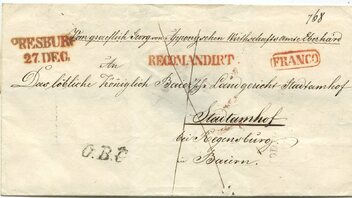 768
PRESBURG
27. DEC.
Vom graeflich Georg von Apponyischen Wirthschaftsamte Eberhard
An
RECOMANDIRT
FRANCO
Das löbliche Königlich Landgericht Stadtamhof
Stadtamhof
bei Regensburg
in
Baiern.
O.B.C